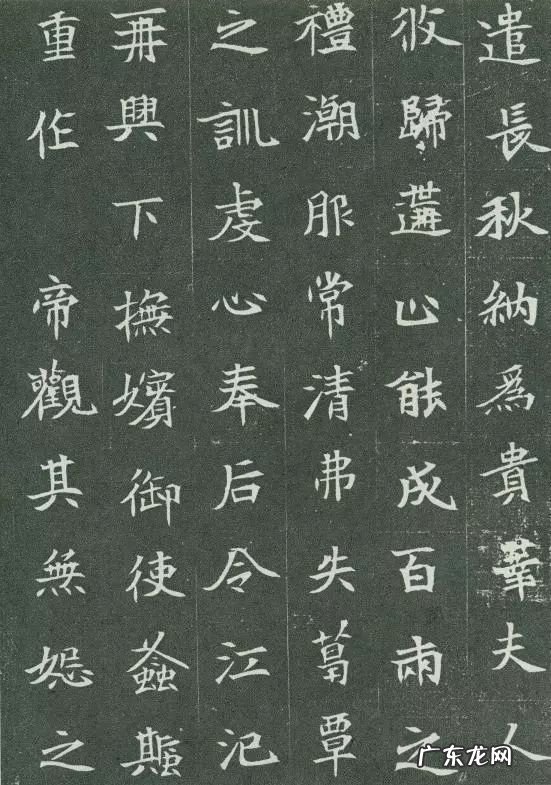 遣長秋納爲貴華夫人
攸歸遘止能成百兩之
禮潮服常清弗失葛覃
之訓虔心奉后令江汜
再興下撫嬪御使螽斯
重作 帝觀其無怨之
广东龙网